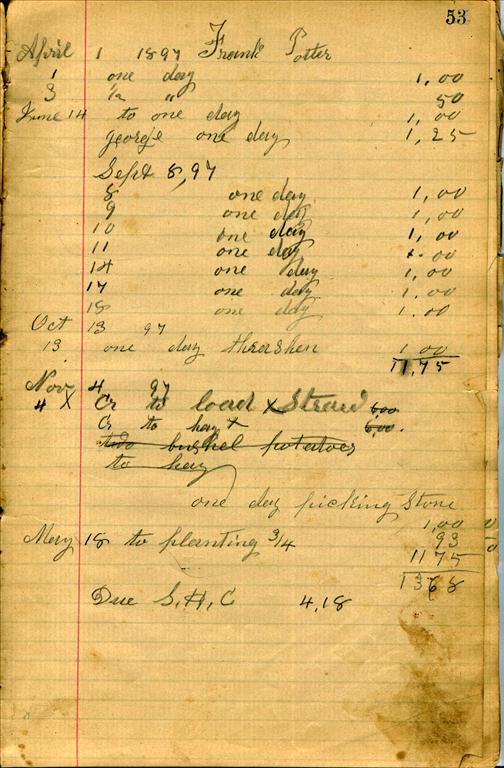 53
April 1 1897 Frank Potter
1 one day 1,00
3 1/2 " 50
June 14 to one day 1,00
george one day 1,25
Sept 8,97
8 one day 1,00
9 one day 1,00
10 one day 1,00
11 one day 1.00
14 one day 1,00
17 one day 1.00
18 one day 1.00
Oct 13 97
13 one day thrashen 1 00
11,75
Nov 4 97
4 X Cr to load x Straw 600
Cr to hay x 6,00.
two bushel potatoes
to hay
one day picking Stone
1,00
May 18 to planting 3/4 93
1175
1368
Due S,H,C 4,18